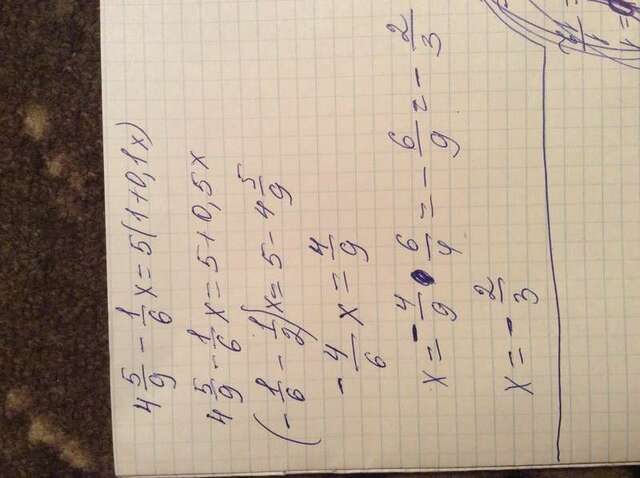 4 5/9 - 1/6 x = 5(1+0,1x)
4 5/9 - 1/6 x = 5+0,5x
(- 1/6 - 1/2)x = 5 - 4 5/9
- 4/6 x = 4/9
x = - 4/9 · 6/4 = - 6/9 = - 2/3
x = - 2/3